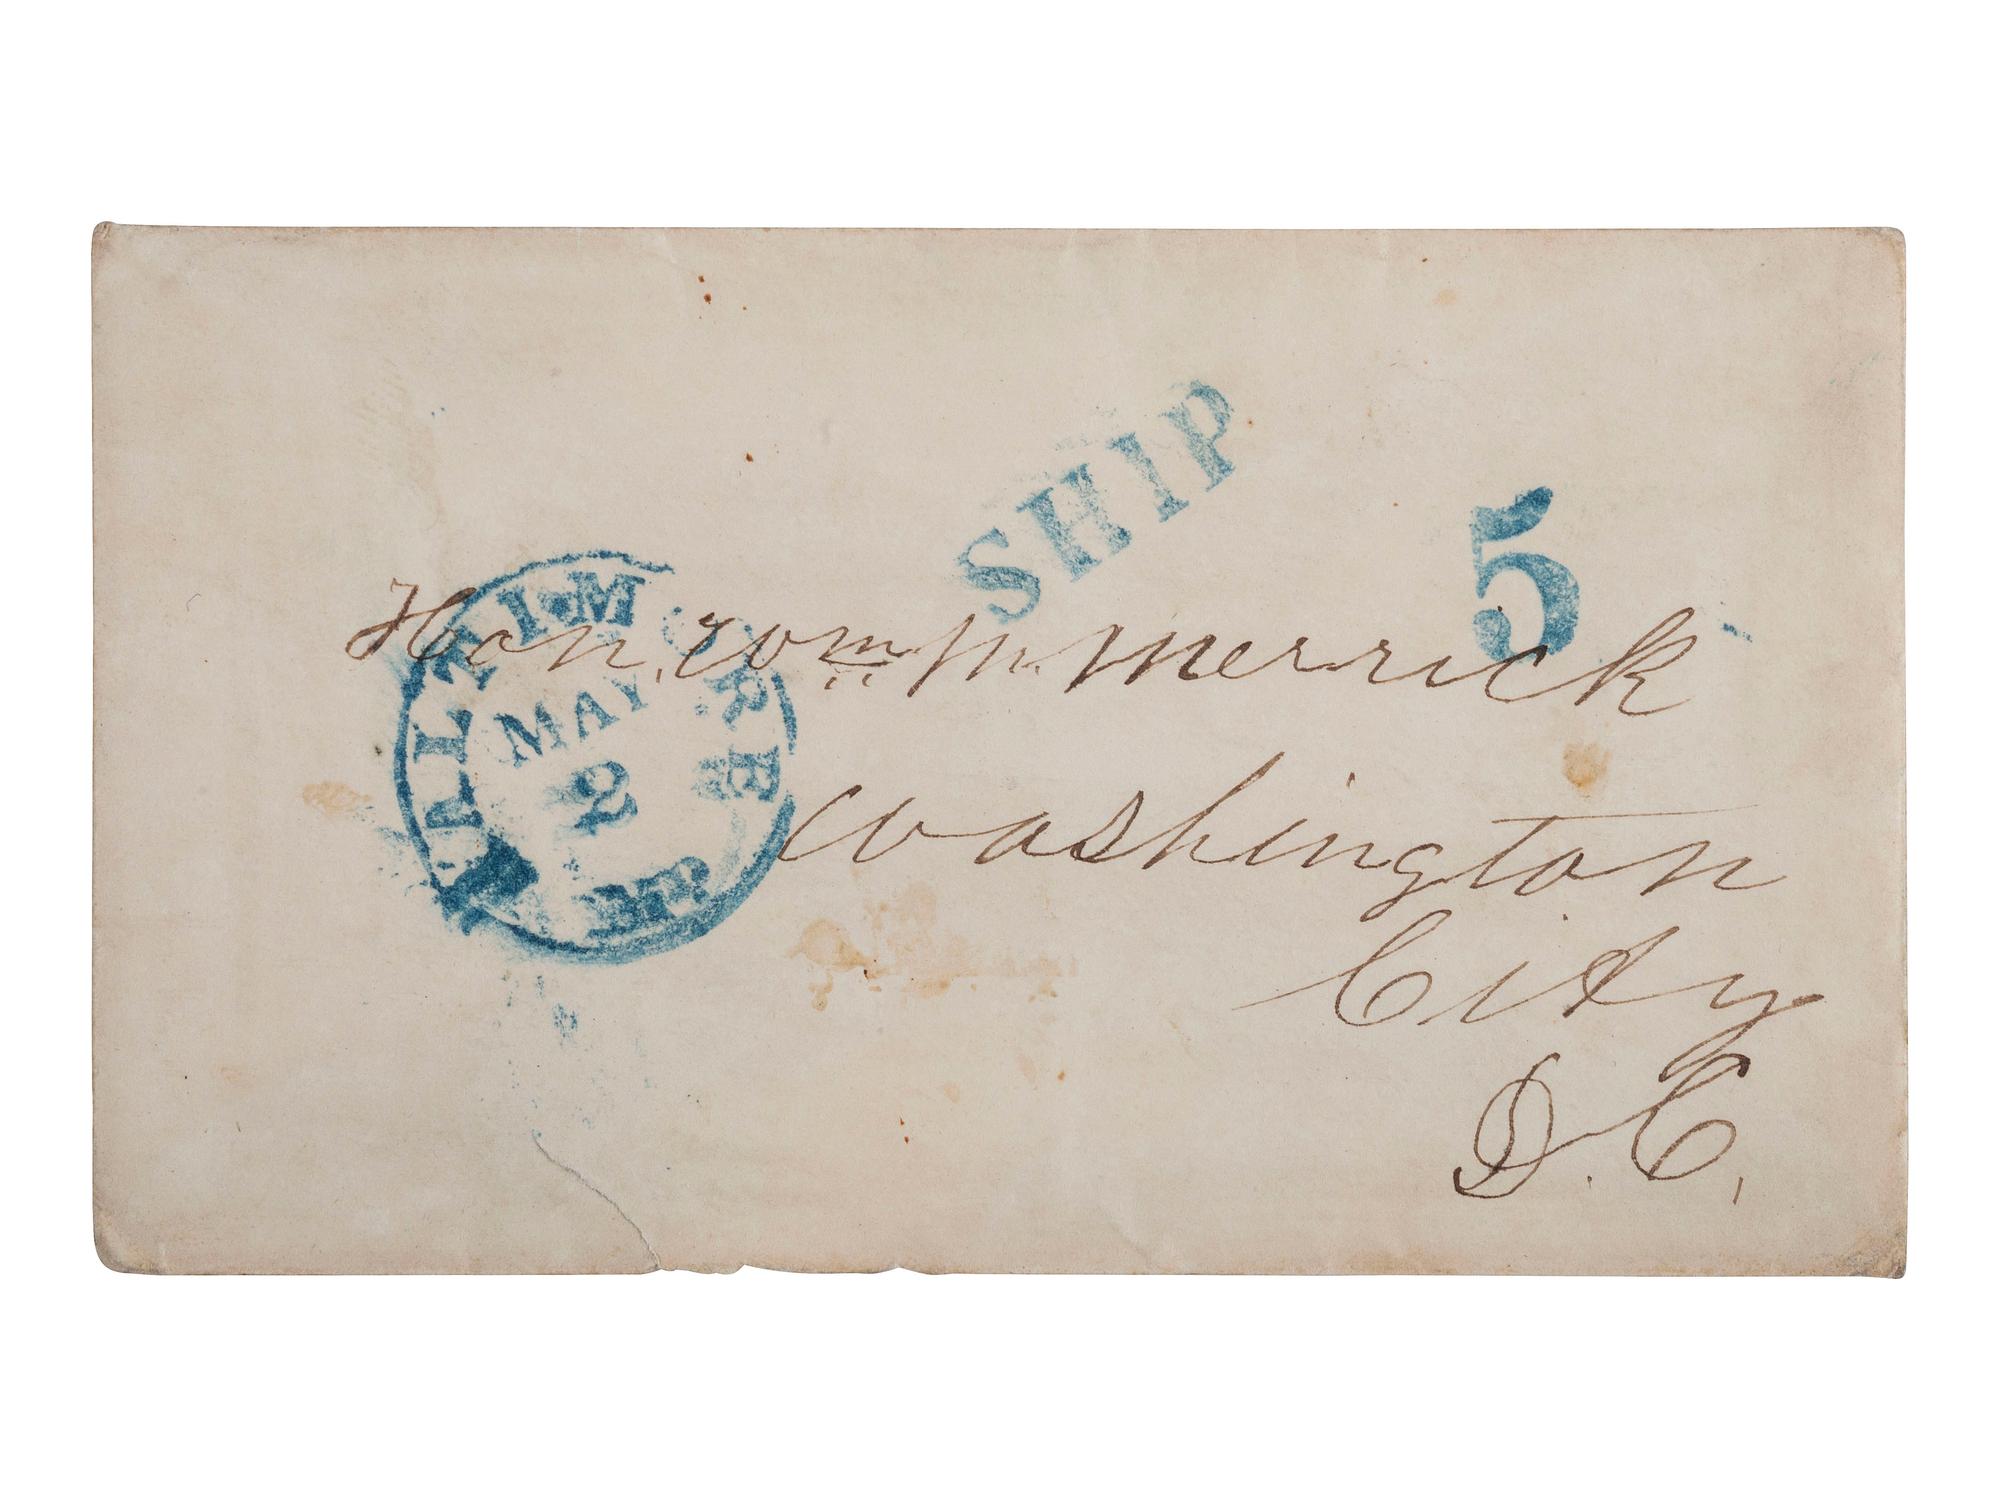 SHIP
5
BALTIMORE
MAY
2
Hon, Wm M. Merrick
Washington
City
D.C.